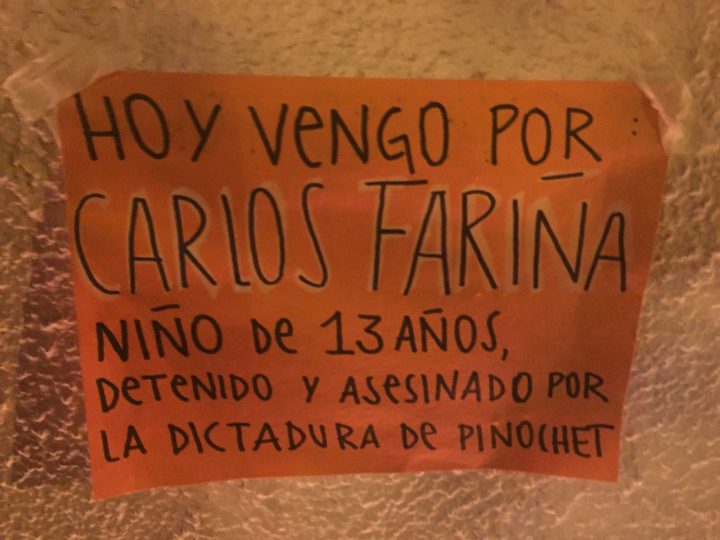 HOY VENGO POR :
CARLOS FARIÑA
NIÑO DE 13 AÑOS,
DETENIDO Y ASESINADO POR
LA DICTADURA DE PINOCHET